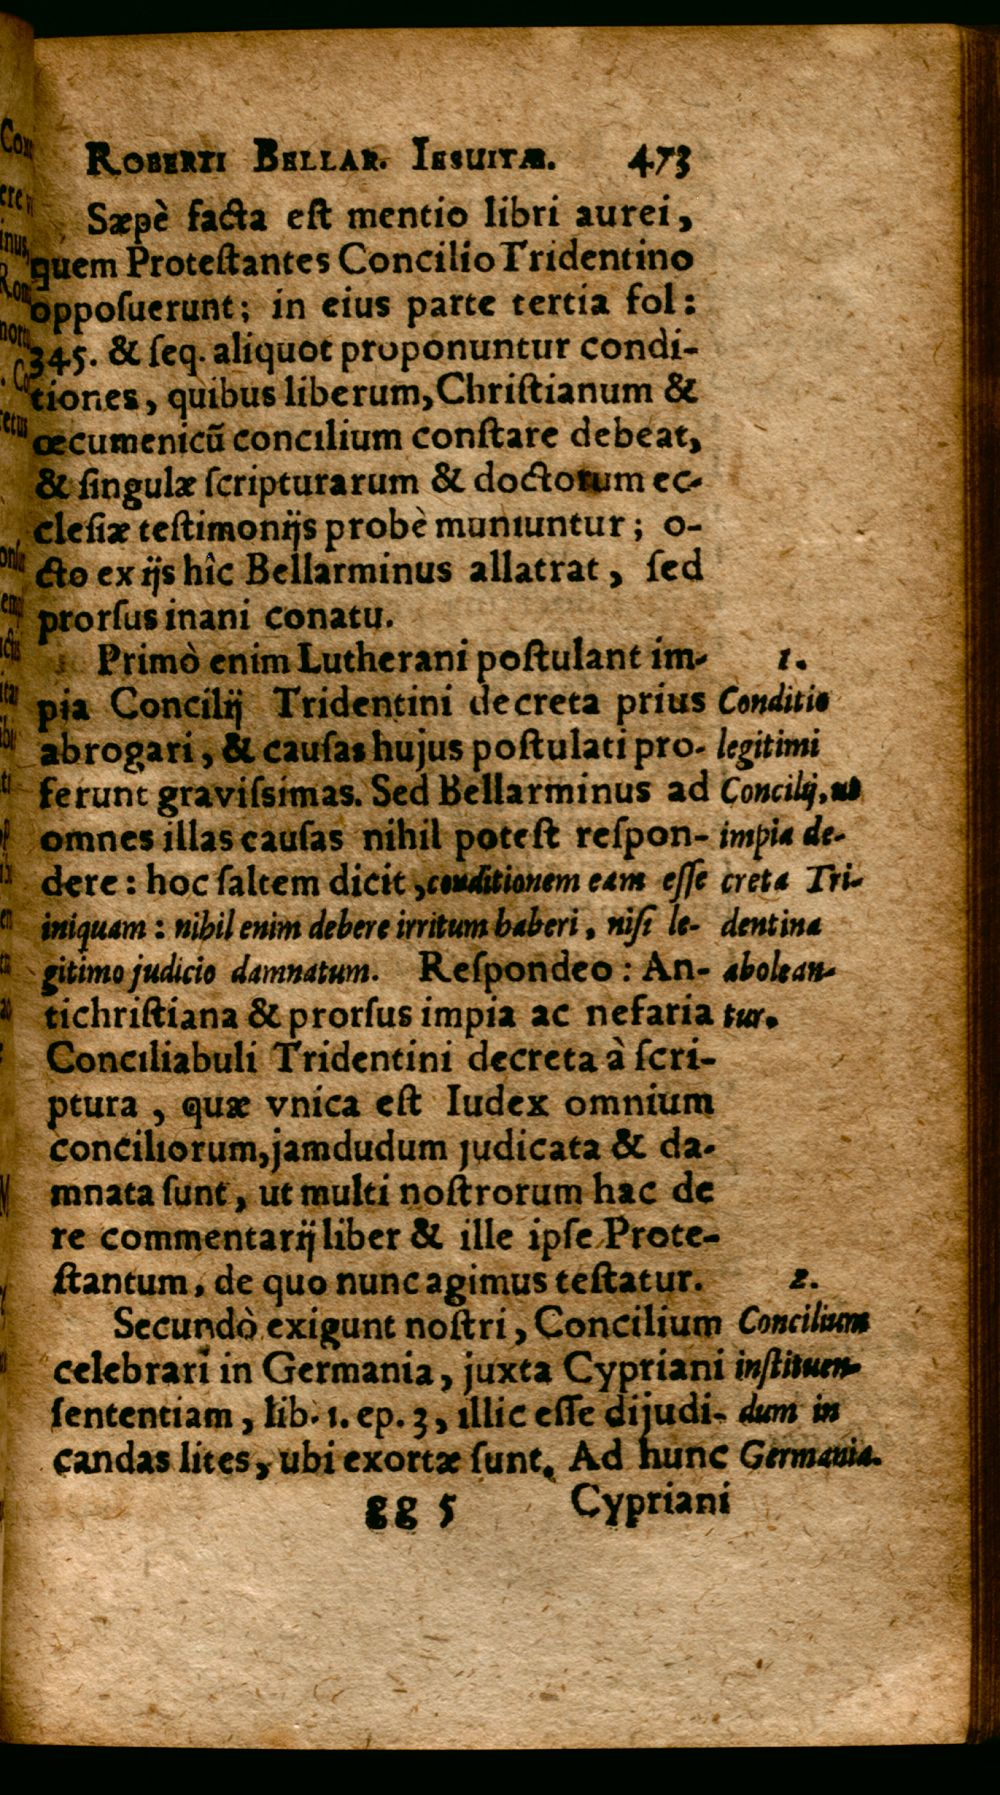 ROBERTI BELLAR. IESUITÆ. 473
Sæpè facta eſt mentio libri aurei,
quem Proteſtantes Concilio Tridentino
oppoſuerunt; in eius parte tertia fol:
345. & ſeq. aliquot proponuntur condi-
tiones, quibus liberum, Chriſtianum &
œcumenicū concilium conſtare debeat,
& ſingulæ ſcripturarum & doctorum ec-
cleſiæ teſtimoniĳs probè muniuntur; o-
cto ex iĳs hîc Bellarminus allatrat, ſed
prorſus inani conatu.
Primò enim Lutherani poſtulant im-
pia Concilĳ Tridentini decreta prius
abrogari, & cauſas hujus poſtulati pro-
ferunt graviſsimas. Sed Bellarminus ad
omnes illas cauſas nihil poteſt reſpon-
dere: hoc ſaltem dicit, conditionem eam eſſe
iniquam: nihil enim debere irritum haberi, niſi le-
gitimo judicio damnatum. Reſpondeo: An-
tichriſtiana & prorſus impia ac nefaria
Conciliabuli Tridentini decreta à ſcri-
ptura, quæ vnica eſt Iudex omnium
conciliorum, jamdudum judicata & da-
mnata ſunt, ut multi noſtrorum hac de
re commentarĳ liber & ille ipſe Prote-
ſtantum, de quo nunc agimus teſtatur.
Secundò exigunt noſtri, Concilium
celebrari in Germania, juxta Cypriani
ſententiam, lib. 1. ep. 3, illic eſſe dijudi-
candas lites, ubi exortæ ſunt. Ad hunc
gg 5 Cypriani
1.
Conditio
legitimi
Concilĳ, ut
impia de-
creta Tri-
dentina
abolean-
tur.
2.
Concilium
inſtituen-
dum in
Germania.